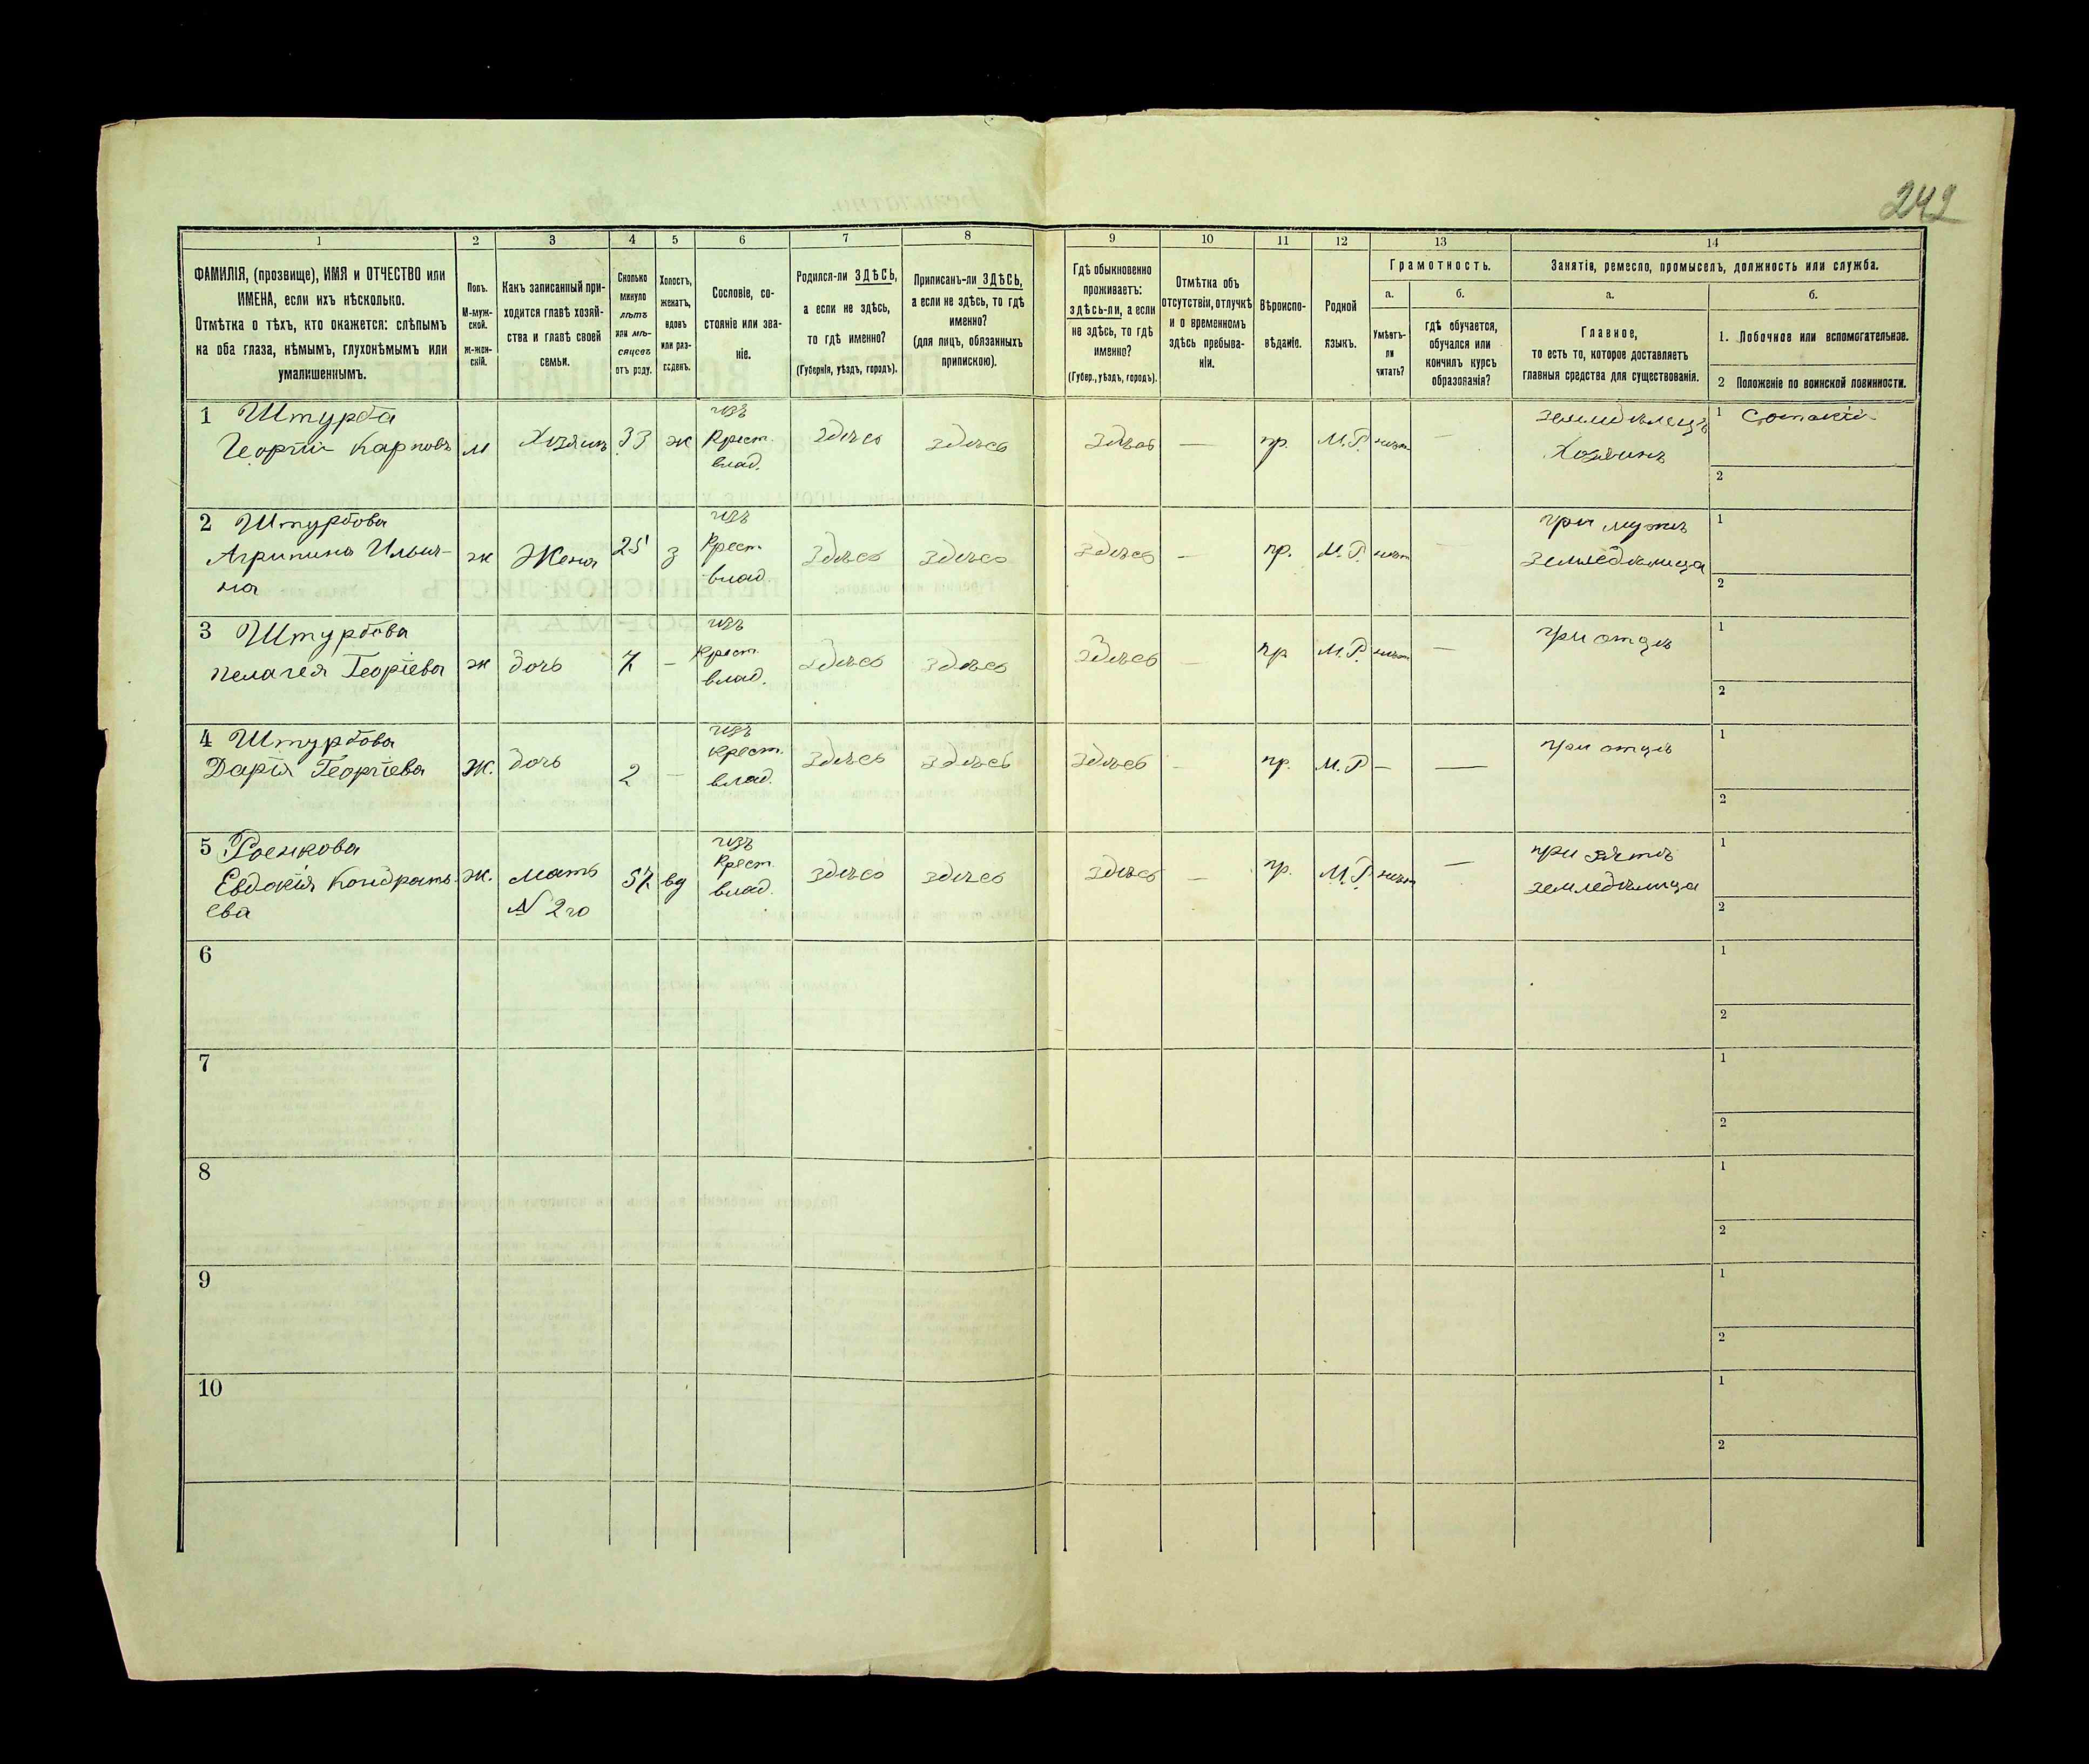 242
1 2 3 4 5 6 7 8 9 10 11 12 13 14
ФАМИЛІЯ, (прозвище), ИМЯ и ОТЧЕСТВО или
ИМЕНА, если ихъ нѣсколько.
Отмѣтка о тѣхъ, кто окажется: слѣпымъ
на оба глаза, нѣмымъ, глухонѣмымъ или
умалишеннымъ.
Полъ.
М-муж-
ской.
Ж-жен-
скій.
Какъ записанный при-
ходится главѣ хозяй-
ства и главѣ своей
семьи.
Сколько
минуло
лѣтъ
или мѣ-
сяцевъ
отъ роду.
Холостъ,
женатъ,
вдовъ
или раз-
веденъ.
Сословіе, со-
стояніе или зва-
ніе.
Родился-ли ЗДѢСЬ,
а если не здѣсь,
то гдѣ именно?
(Губернія, уѣздъ, городъ).
Приписанъ-ли ЗДѢСЬ,
а если не здѣсь, то гдѣ
именно?
(для лицъ, обязанныхъ
припискою).
Гдѣ обыкновенно
проживаетъ:
здѣсь-ли, а если
не здѣсь, то гдѣ
именно?
(Губер., уѣздъ, городъ).
Отмѣтка объ
отсутствіи, отлучкѣ
и о временномъ
здѣсь пребыва-
ніи.
Вѣроиспо-
вѣданіе.
Родной
языкъ.
Грамотность.
а.
Умѣетъ-
ли
читать?
б.
гдѣ обучается,
обучался или
кончилъ курсъ
образованія?
Занятіе, ремесло, промыселъ, должность или служба.
а.
Главное,
то есть то, которое доставляетъ
главныя средства для существованія.
б.
1. Побочное или вспомогательное.
2 Положеніе по воинской повинности.
1 Штурба
Георгій Карповъ
м
Хозяинъ
33
ж
изъ
Крест.
влад.
здѣсь
здѣсь
здѣсь
—
пр.
М.Р.
нѣт
—
земледѣлецъ
Хозяинъ
1 Сотскій
2
2 Штурбова
Агрипина Ильи-
на
ж
Жена
25
з
изъ
Крест.
влад.
здѣсь
здѣсь
здѣсь
—
пр.
М.Р.
нѣт
—
при мужѣ
земледѣлица
1
2
3 Штурбова
Пелагея Георгіева
ж
дочь
7
—
изъ
Крест.
влад.
здѣсь
здѣсь
здѣсь
—
пр
М.Р.
нѣт
—
при отцѣ
1
2
4 Штурбова
Дарія Георгіева
Ж.
дочь
2
—
изъ
крест.
влад.
здѣсь
здѣсь
здѣсь
—
пр.
М.Р
—
—
при отцѣ
1
2
5 Роенкова
Евдокія Кондрать-
ева
Ж.
мать
№ 2го
57
вд
изъ
Крест.
влад.
здѣсь
здѣсь
здѣсь
—
пр.
М.Р.
нѣт
—
при зятѣ
земледѣлица
1
2
6
1
2
7
1
2
8
1
2
9
1
2
10
1
2